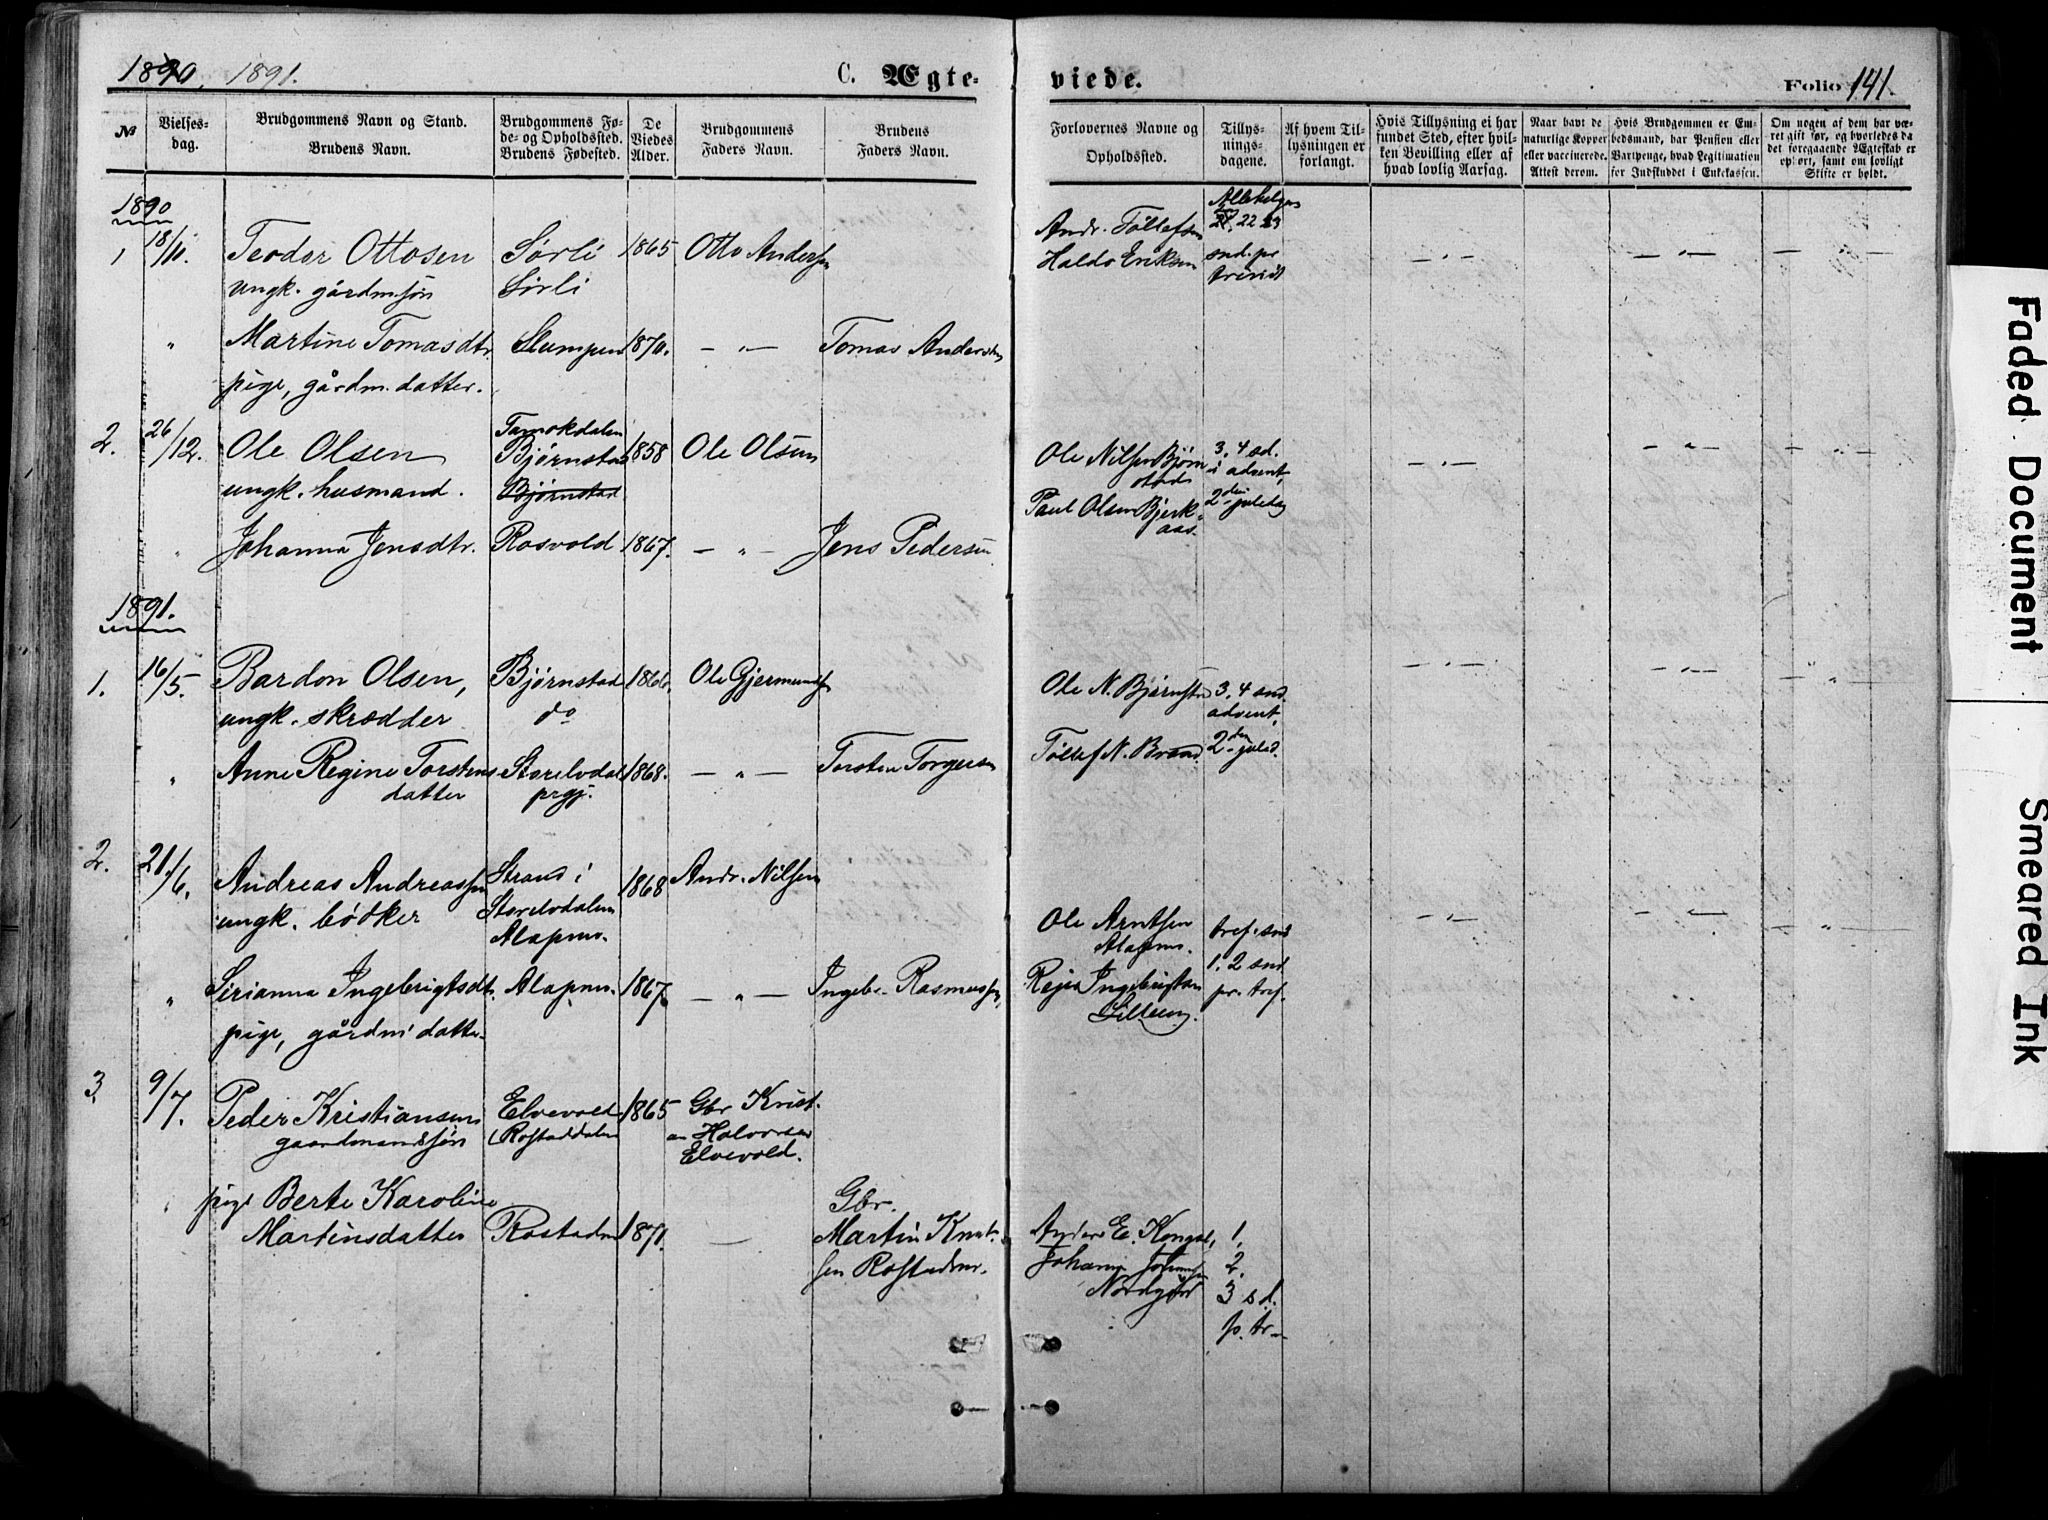 1890, 1891.
C. Ægte-
viede.
Folio 141.
№
Vielses-
dag.
Brudgommens Navn og Stand.
Brudens Navn.
Brudgommens Fø-
de- og Opholdssted.
Brudens Fødested.
De
Viedes
Alder.
Brudgommens
Faders Navn.
Brudens
Faders Navn.
Forlovernes Navne og
Opholdsted.
Tillys-
nings-
dagene.
Af hvem Til-
lysningen er
forlangt.
Hvis Tillysning ei har
fundet Sted, efter hvil-
ken Bevilling eller af
hvad lovlig Aarsag.
Naar havt de
naturlige Kopper
eller vaccinerede.
Attest derom.
Hvis Brudgommen er Em-
bedsmand, har Pension eller
Vartpenge, hvad Legitimation
for Indskuddet i Enkekassen.
Om nogen af dem har væ-
ret gift før, og hvorledes da
det foregaaende Ægteskab er
ophørt, samt om lovligt
Skifte er holdt.
1890
1 18/11. Teodor Ottosen Sørli 1865 Otto Andersen
ungk. gårdm.søn Sørli
Andr. Tollefsen
Haldo Eriksen
22 23
snd. pr
trinit
" Martine Tomasdtr. Slumpen 1870. — " — Tomas Andersen
pige, gårdm. datter.
2. 26/12. Ole Olsen Tamokdalen
Bjørnstad 1858 Ole Olsen
ungk. husmand. Bjørnstad
Ole Nilsen Bjørn
stad
Paul Olsen Bjerk-
aas.
3. 4 sd.
i advent,
2den juledag
" Johanna Jensdtr. Rosvold 1867. — " — Jens Pedersen
1891.
1. 16/5. Bardon Olsen, Bjørnstad 1866. Ole Gjermundsen
ungk. skrædder do
Ole N. Bjørnstad 3. 4 snd.
advent,
Tollef N. Braad 2den juled.
" Anne Regine Torstens Storelvdal 1868. — " — Torsten Torgersen
datter prgj.
2. 21/6. Andreas Andreassen Strand i 1868 Andr. Nilsen
ungk. bødker Storelvdalen
Alapmo.
Ole Arntsen
Alapmo.
tref. snd
1. 2 snd.
pr. tref.
" Sirianna Ingebrigtsdtr. Alapmo. 1867. — " — Ingebr. Rasmussen,
pige, gårdm. datter.
3. 9/7. Peder Kristiansen Elvevold 1865 Gbr Krist.
gaardmandssøn i Rostaddalen an Halvorsen
Elvevold.
" pige Berte Karoline Gbr.
Martinsdatter Rostadm 1871. — Martin Knut-
sen Rostadmo.
Anders E. Kongsl, 1.
Johan Johannsen 2.
Nordgård 3 sd.
p. tr—
Faded Document
Smeared Ink